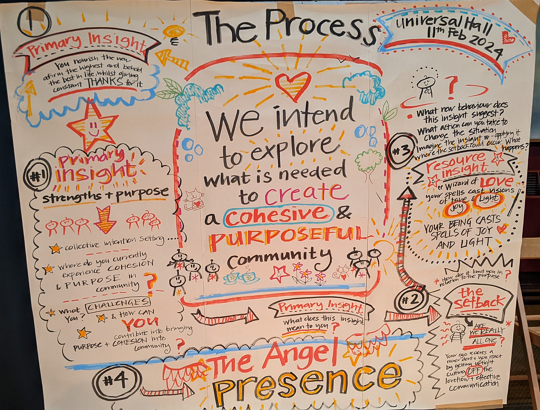 1
The Process
Universal Hall
11th Feb 2024
Primary Insight
You nourish the
affirm the highest and
the best in life whilst giving
constant THANKS for it
#1
Primary
insight
strengths + purpose
collective intention setting....
Where do you currently
experience COHESION
& PURPOSE in
community?
What CHALLENGES
You? & HOW CAN
YOU
contribute into bringing
PURPOSE + COHESION into
community?
We intend
to explore
what is needed
to create
a cohesive &
PURPOSEFUL
community
Primary Insight
What does this insight
mean to you?
?
What new behaviour does
this insight suggest?
What action can you take to
change the situation
Imagine the insight
where the setback could occur. What
happens?
#3
Resource
insight
Wizard of LOVE
your spells cast visions
of love & Light
Joy
YOUR BEING CASTS
SPELLS OF JOY
AND LIGHT
#2
the
Setback
REALLY
ALONE
OFF the
communication
#4
The Angel
presence